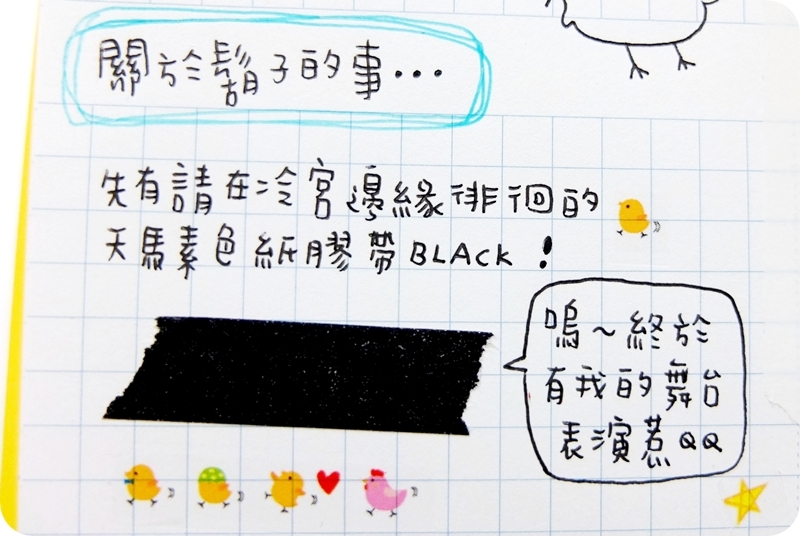 關於鬍子的事...
先有請在冷宮邊緣徘徊的
天馬素色紙膠帶BLACK!
嗚~終於
有我的舞台
表演惹QQ